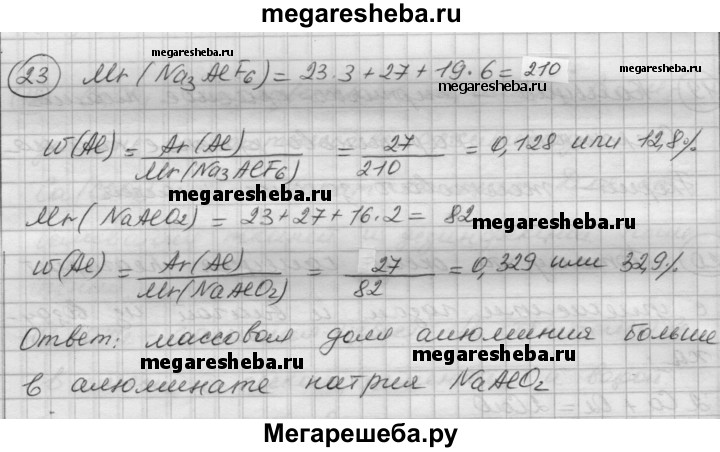 megaresheba.ru
megaresheba.ru
23 Mr(Na₃AlF₆) = 23·3+27+19·6 = 210
megaresheba.ru
megaresheba.ru
w(Al) = Ar(Al) / Mr(Na₃AlF₆) = 27 / 210 = 0,128 или 12,8%
megaresheba.ru
Mr(NaAlO₂) = 23+27+16·2 = 82
megaresheba.ru
w(Al) = Ar(Al) / Mr(NaAlO₂) = 27 / 82 = 0,329 или 32,9%
Ответ: массовая доля алюминия больше
megaresheba.ru
megaresheba.ru
в алюминате натрия NaAlO₂
Мегарешеба.ру